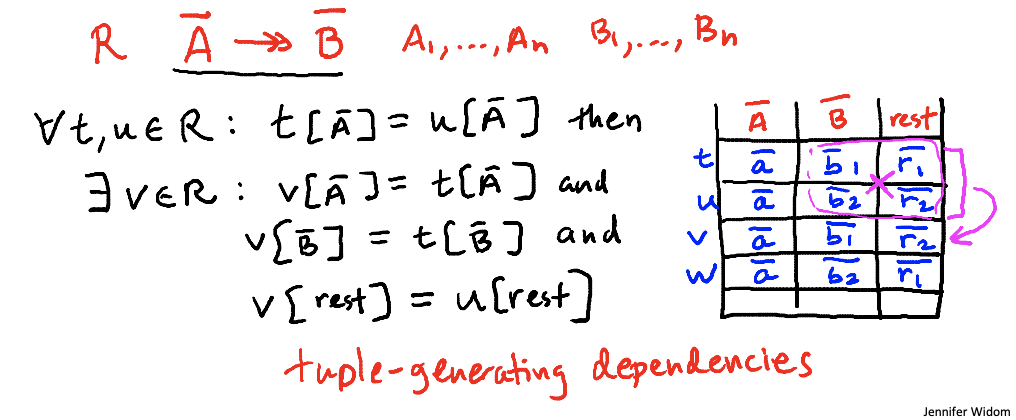 R Ā ↠ B̄ A₁,...,Aₙ B₁,...,Bₙ
∀t,u∈R: t[Ā] = u[Ā] then
∃v∈R: v[Ā] = t[Ā] and
v[B̄] = t[B̄] and
v[rest] = u[rest]
Ā B̄ rest
t ā b̄₁ r̄₁
u ā b̄₂ r̄₂
v ā b̄₁ r̄₂
w ā b̄₂ r̄₁
tuple-generating dependencies
Jennifer Widom